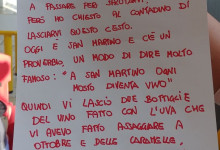 A PASSARE PER SALUTARVI,
PERÒ HO CHIESTO AL CONTADINO DI
LASCIARVI QUESTO CESTO.
OGGI È SAN MARTINO E C'È UN
PROVERBIO, UN MODO DI DIRE MOLTO
FAMOSO: "A SAN MARTINO OGNI
MOSTO DIVENTA VINO"
QUINDI VI LASCIO DUE BOTTIGLIE
DEL VINO FATTO CON L'UVA CHE
VI AVEVO FATTO ASSAGGIARE A
OTTOBRE E DELLE CARAMELLE,